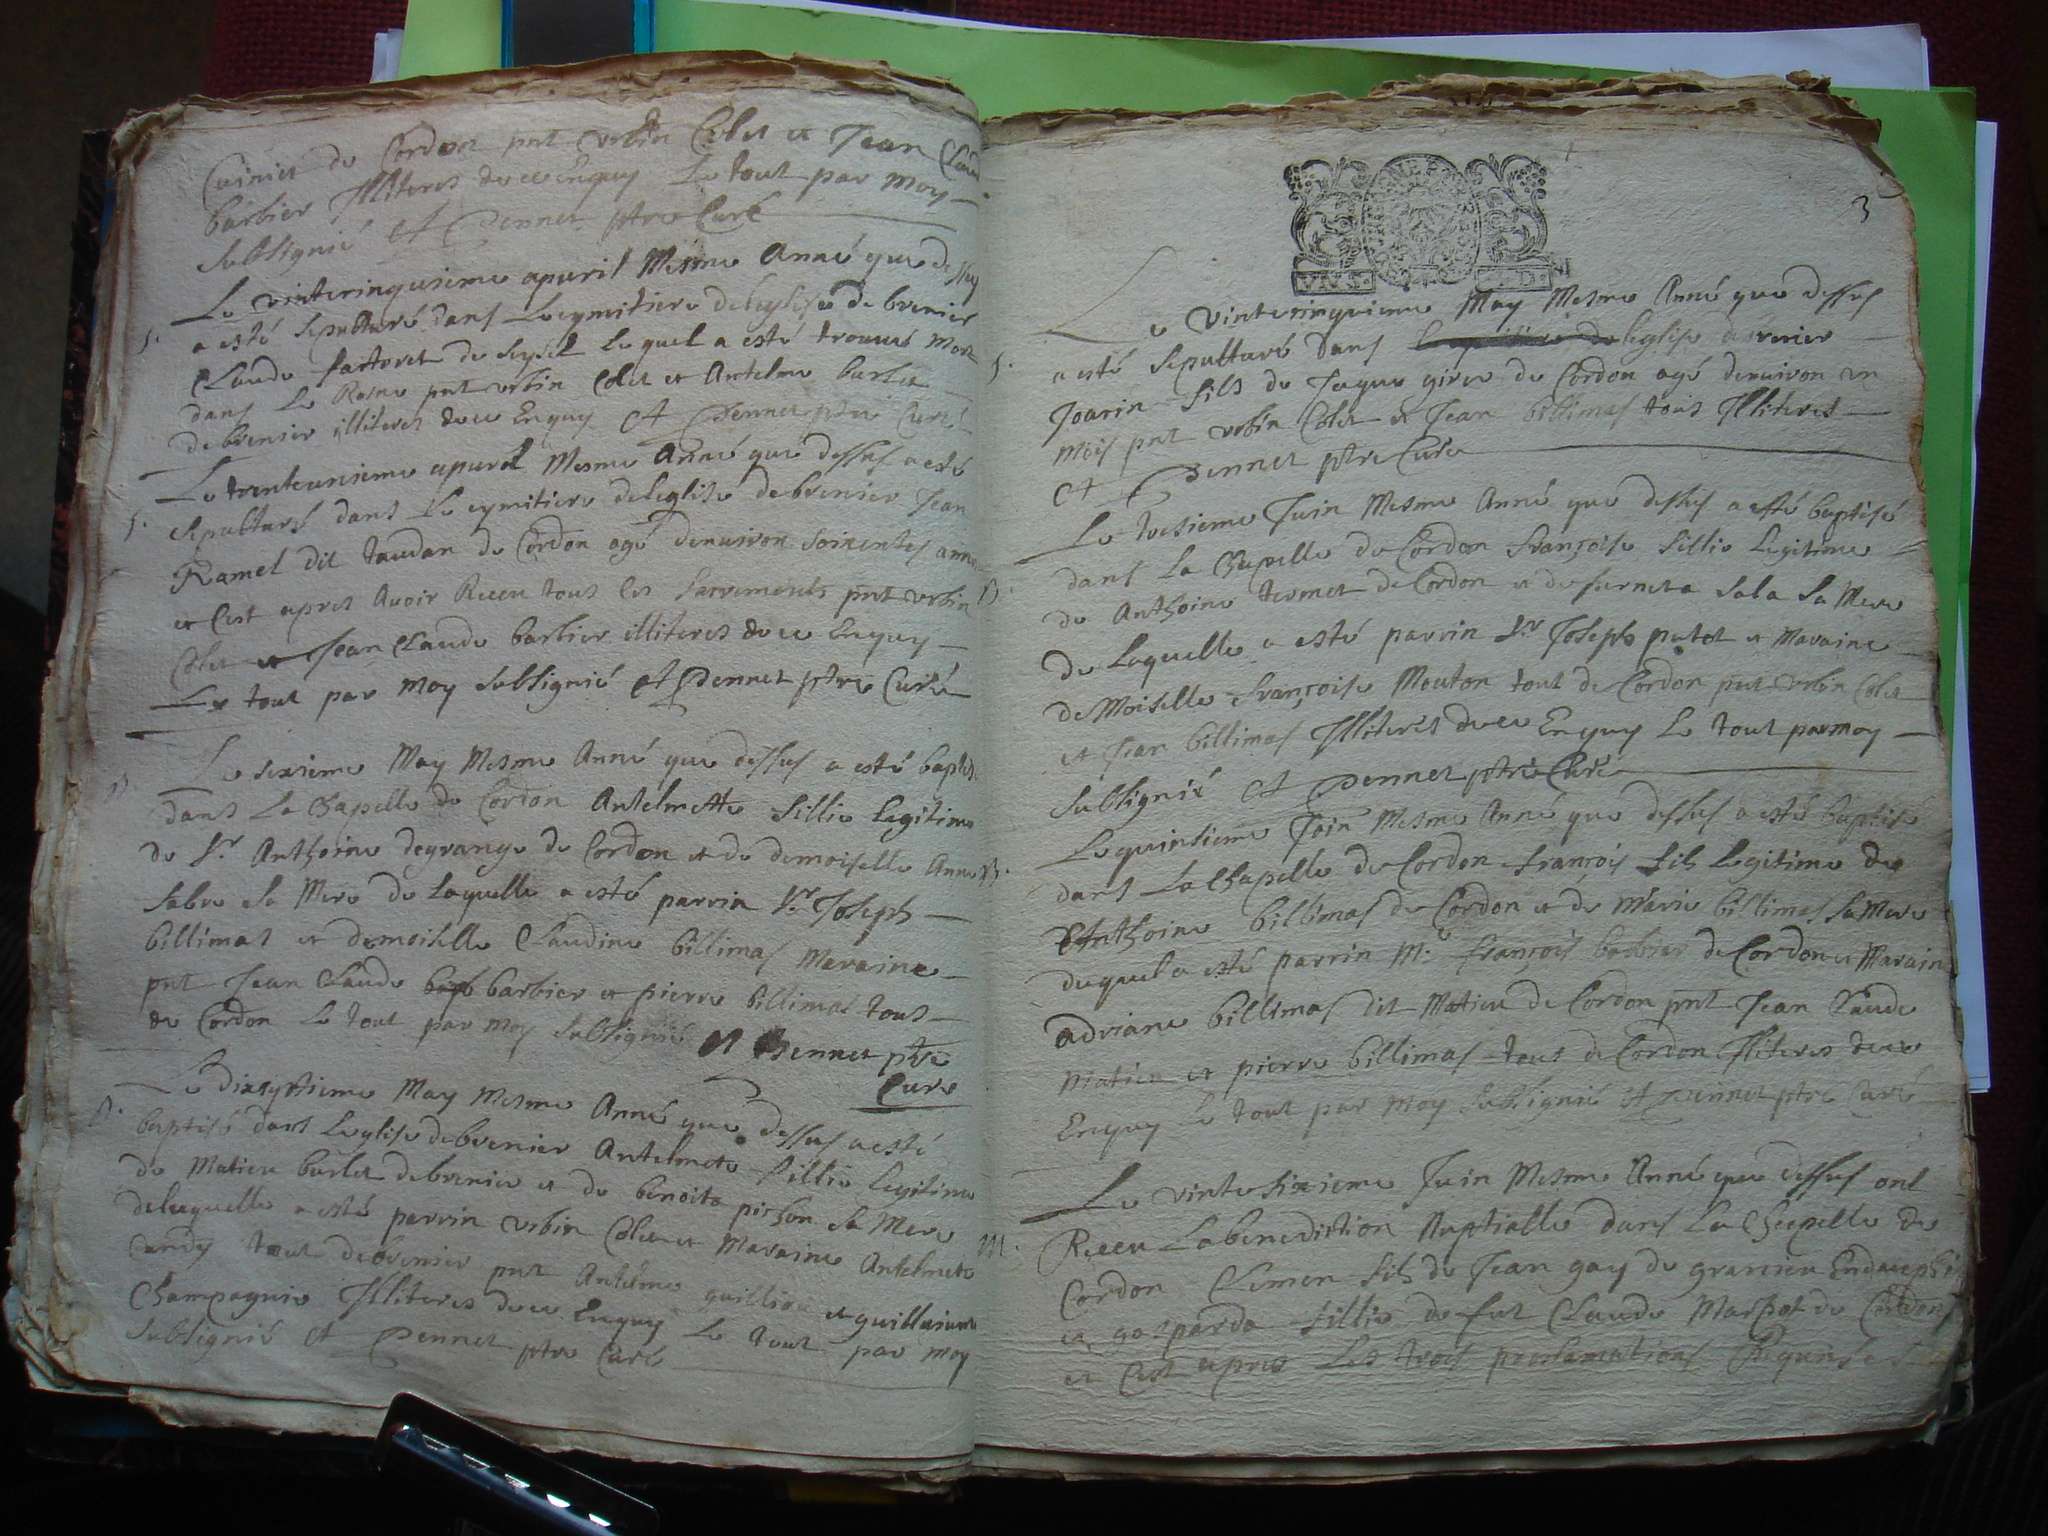 Cuinier de Cordon pnt Urbin Colet et Jean Claude
barbier Illiteres de ce Enquy Le tout par moy
subsigniè A Pennet ptre Curé
Le vintcinquieme apuril Mesme Anné que dessus
S. a esté Sepulturé dans Le cymitiere de leglise de brenier
Claude fastoret de Seysel Le quel a esté trouué mort
dans Le Rosne pnt urbin Colet et Antelme burlet
de brenier illiteres de ce Enquy A Pennet ptre Curé
Le trenteunieme apuril Mesme Anné que dessus a esté
S. Sepulturé dans Le cymitiere de leglise de brenier Jean
Ramel dit taudan de Cordon agé denuiron soixentes annes
et Cest apres Auoir Receu tous les Sacrements pnt urbin
Colet et Jean Claude barbier illiteres de ce Enquy
Le tout par moy subsignié A Pennet ptre Curé
B. Le sixieme May Mesme Anné que dessus a esté baptisé
dans La Chapelle de Cordon Antelmette fillie Legitime
de Sr Anthoine degrange de Cordon et de demoiselle Anne
Sabre Sa Mere de Laquelle a esté parrin Sr Joseph
billimas et demoiselle Claudine billimas Maraine
pnt Jean Claude barbier et pierre billimas tous
de Cordon Le tout par moy subsignié A Pennet ptre
Curé
Le dixseptieme May Mesme Anné que dessus a esté
B. baptisé dans Leglise de brenier Antelmete fillie Legitime
de Matieu burlet de brenier et de benoite pichon Sa Mere
de laquelle a esté parrin urbin Colet et Maraine Antelmete
tout de brenier pnt Antelme guillion et guillaiume
Champagnie Illiteres de ce Enquy Le tout par moy
subsignié A Pennet ptre Curé
3
VN S. D.
Le vintcinquieme May Mesme Anné que dessus
S. a esté Sepulturé dans leglise de brenier
Joarin fils de Jaque giroe de Cordon agé denuiron un
Mois pnt urbin Colet et Jean billimas tous Illiteres
A Pennet ptre Curé
Le tresieme Juin Mesme Anné que dessus a esté baptisé
B. dans La Chapelle de Cordon françoise fillie Legitime
de Anthoine termet de Cordon et de perneta Sala Sa Mere
de Laquelle a esté parrin Sr Joseph putot et Maraine
deMoiselle françoise Mouton tout de Cordon pnt urbin Colet
et Jean billimas Illiteres de ce Enquy Le tout par moy
subsignié A Pennet ptre Curé
Le quinsieme Join Mesme Anné que dessus a esté baptisé
B. dans La Chapelle de Cordon françois fils Legitime de
Anthoine billimas de Cordon et de Marie billimas Sa Mere
duquel a esté parrin M.e françois barbier de Cordon et Maraine
adriane billimas dit Matieu de Cordon pnt Jean Claude
Matieu et pierre billimas tous de Cordon Illiteres de ce
Enquy Le tout par moy subsignié A Pennet ptre Curé
Le vintesixieme Juin Mesme Anné que dessus ont
M. Receu La benediction Nuptialle dans La Chapelle de
Cordon Clemen fils de Jean gay de granieu Endauphi
et gasparde fillie de fut Claude Marpot de Cordon
et Cest apres Les trois proclamations Requises